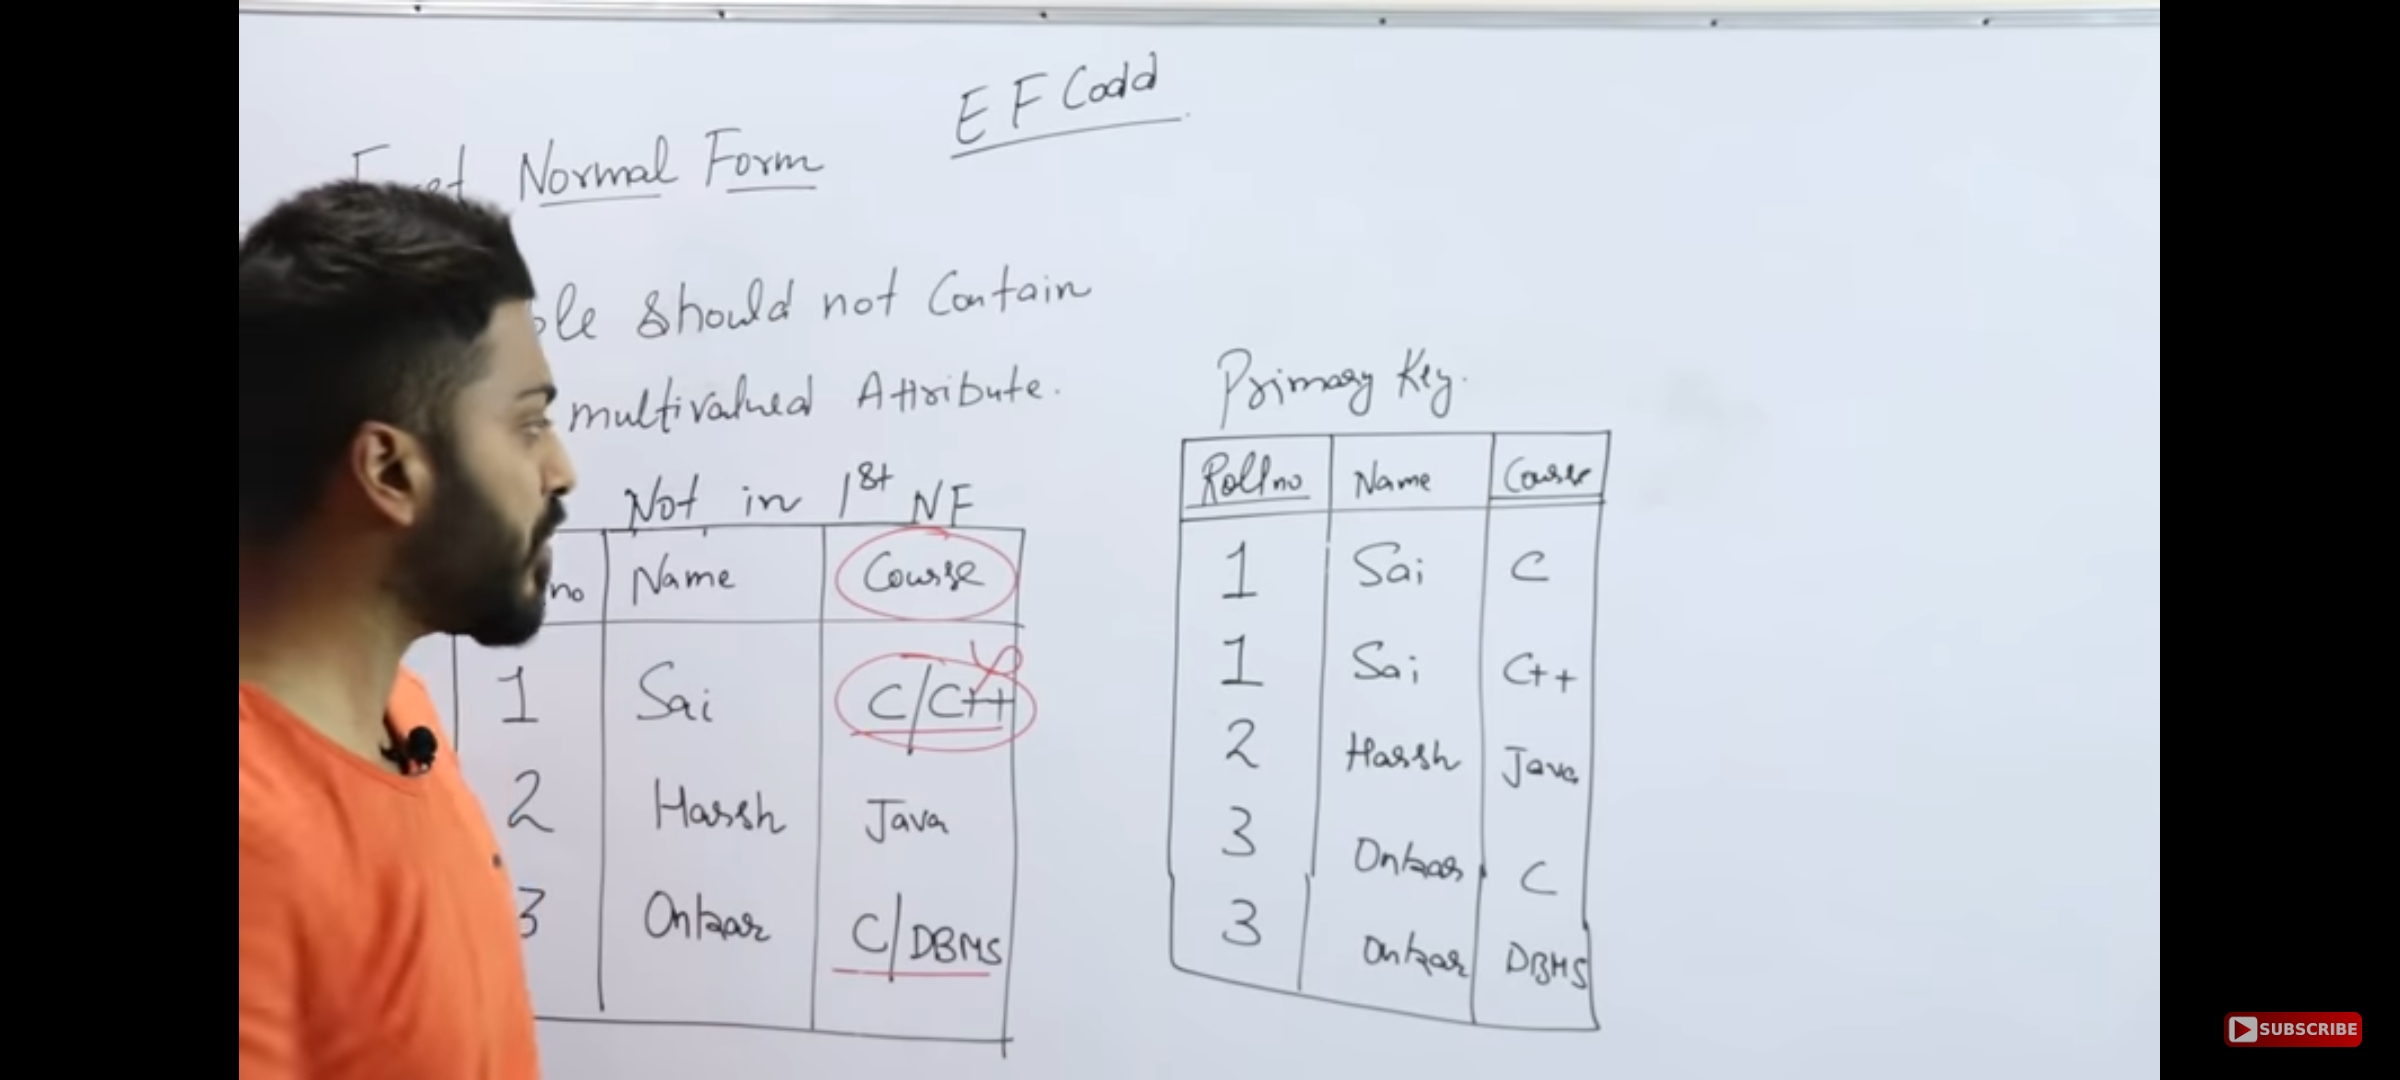 E F Codd
Normal Form
should not Contain
multivalued Attribute.
Not in 1st NF
no Name Course
1 Sai C/C++
2 Harsh Java
3 Onkar C/DBMS
Primary Key.
Rollno Name Course
1 Sai C
1 Sai C++
2 Harsh Java
3 Onkar C
3 Onkar DBMS
SUBSCRIBE